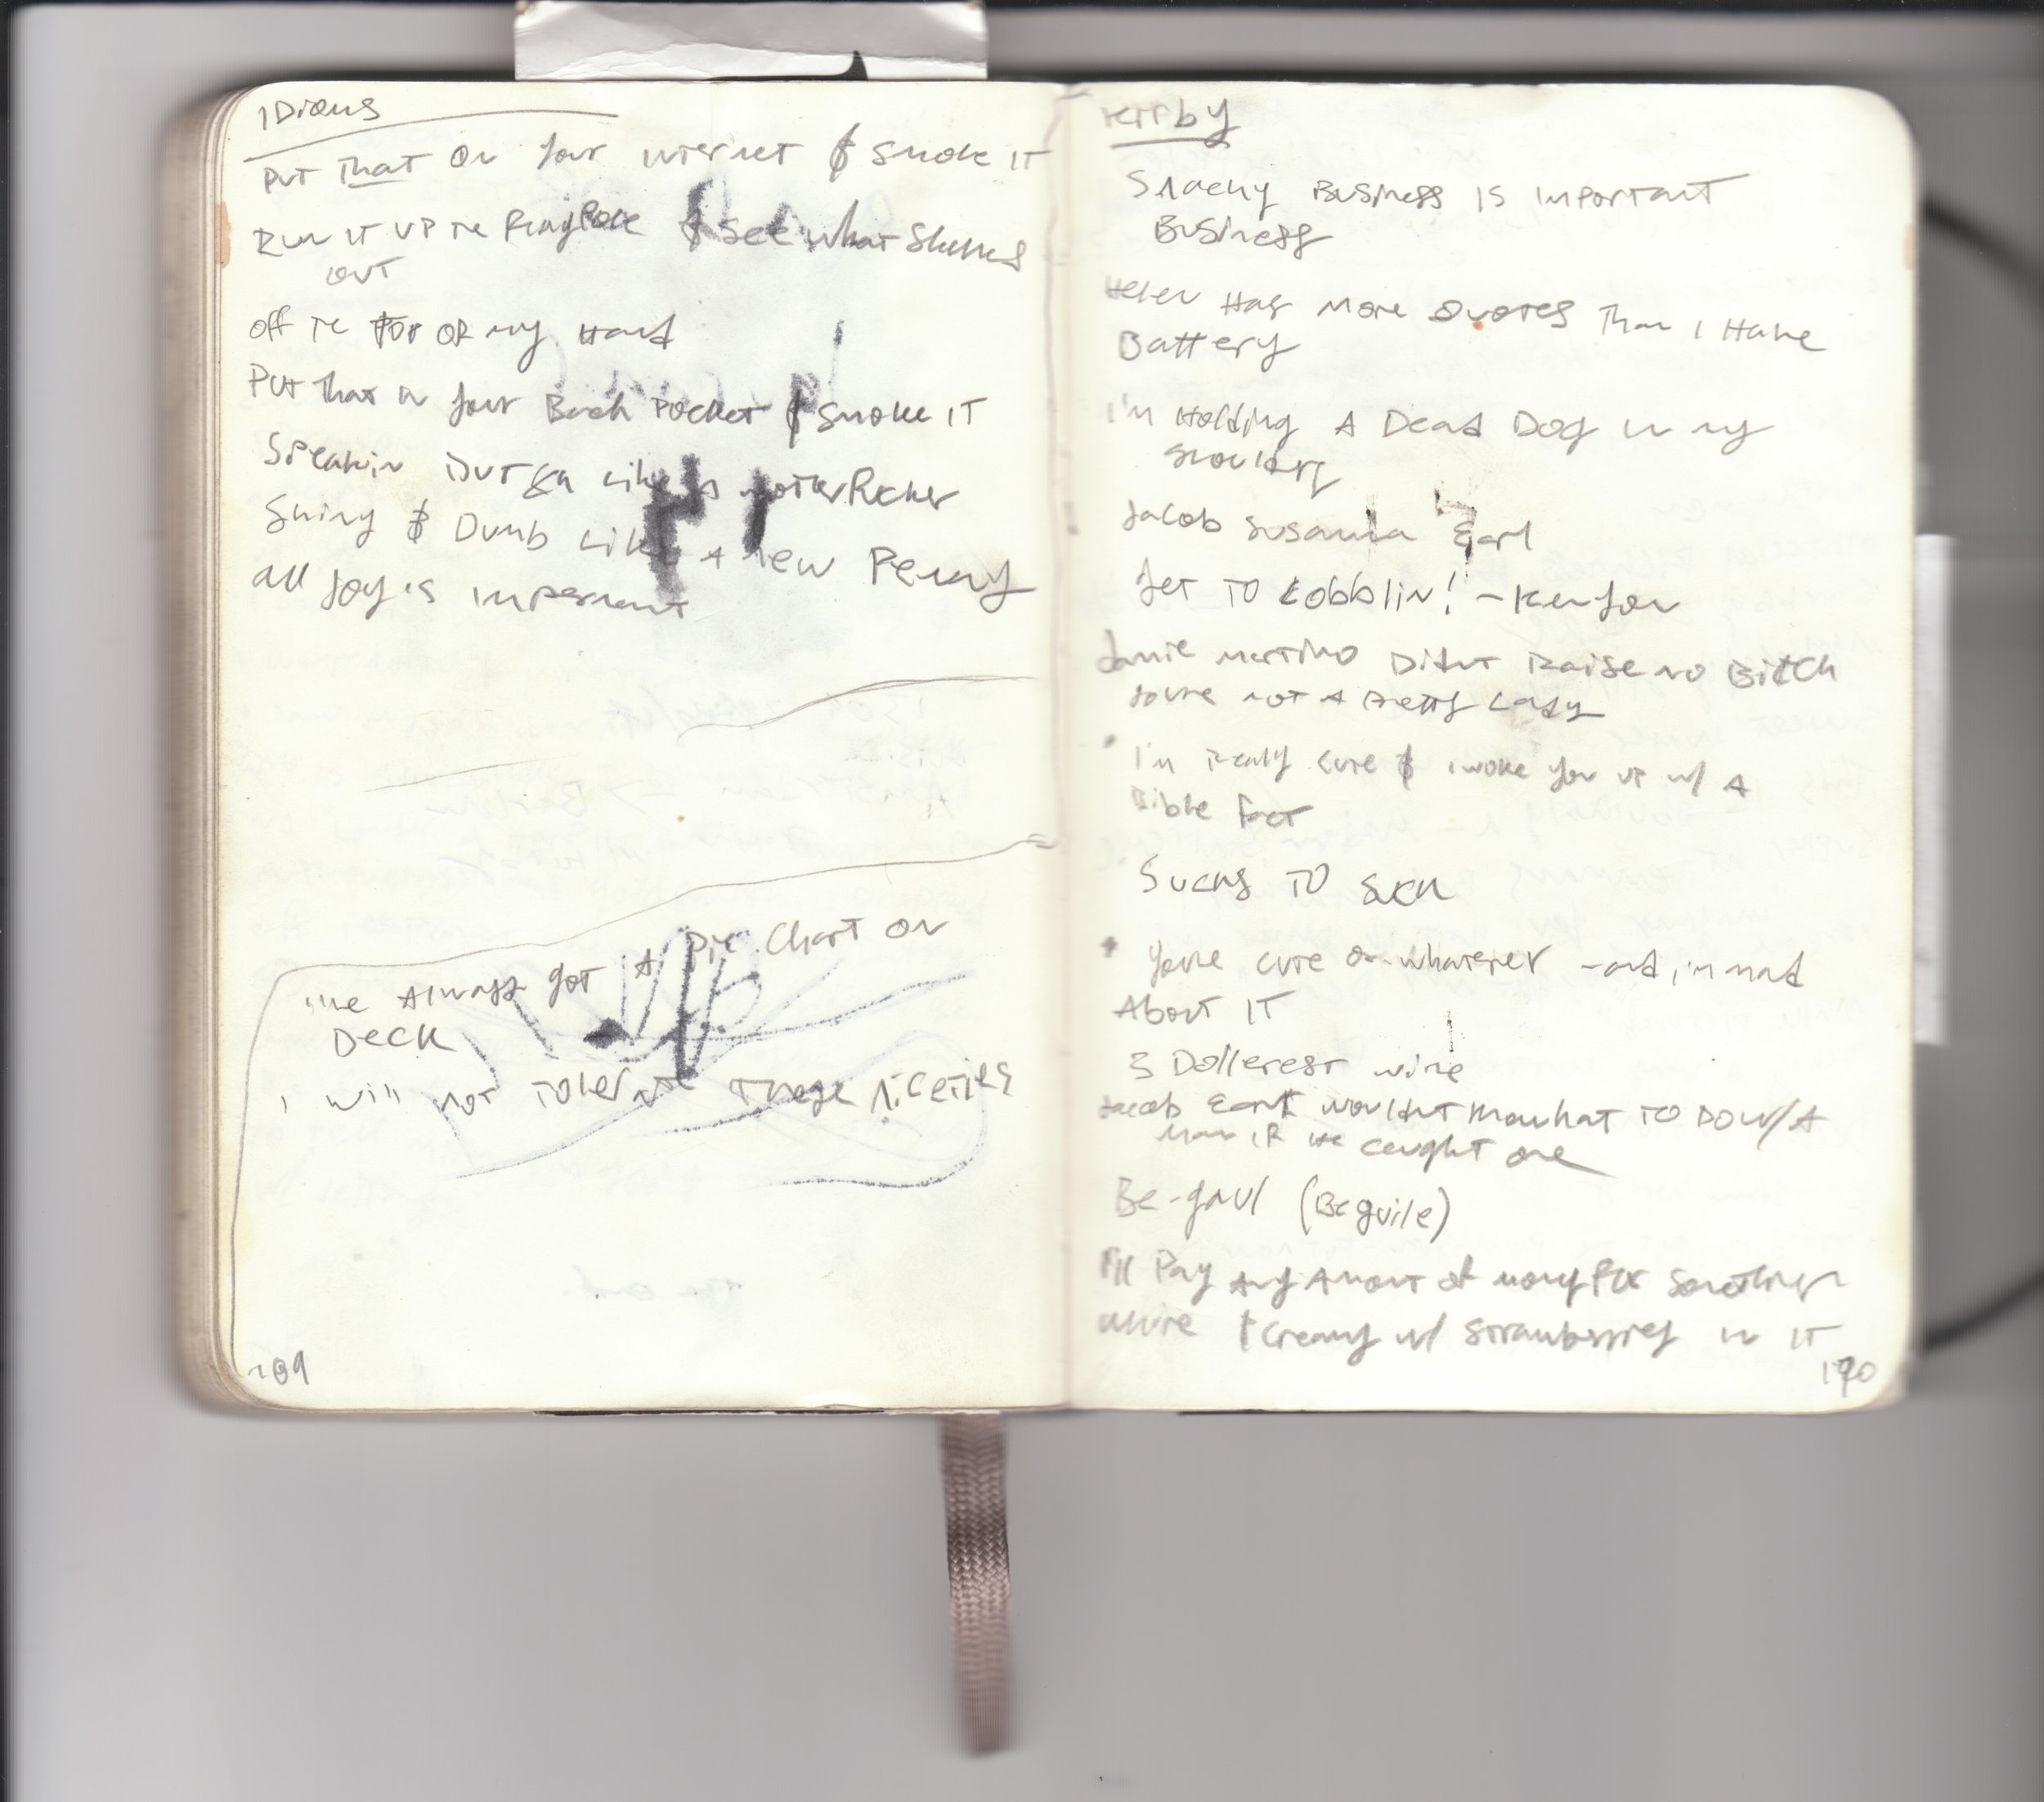 IDIOMS
PUT That On Your INTERNET & Smoke IT
RUN IT UP The FlagPole & See what Shakes
OUT
Off The TOP OF my Hand
Put That in Your Back Pocket & Smoke IT
Speakin Like a motherfucker
Shiny & Dumb Like A New Penny
All Joy is important
I've Always got A Pie Chart On
Deck
I will not Tolerate These Niceties
189
Kirby
Snacky Business Is IMPORTANT
Business
Helen Has More Quotes Than I Have
Battery
I'm Holding A Dead Dog in my
Shoulders
Jacob Susanna Earl
Get TO Cobblin! -
Jamie Martino Didnt Raise no Bitch
Youre not A Pretty Lady
• I'm Really Cute & I woke you up w/ A
Bible Fact
Sucks TO Suck
• You're cute or whatever - and i'm mad
About IT
3 Dollerest wine
Jacob Earl wouldnt know what TO DO w/ A
Man if He caught one
Be-gaul (Beguile)
I'll Pay Any Amount of money for Something
white & Creamy w/ Strawberries in IT
190